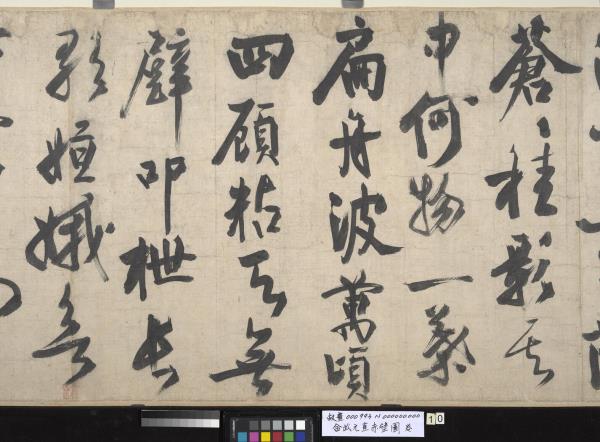 蒼〻桂影其
中何物一葉
扁舟波萬頃
四顧粘天無
壁叩枻長
歌姮娥欲
故畫000994N000000000
金武元直赤壁圖 卷
10